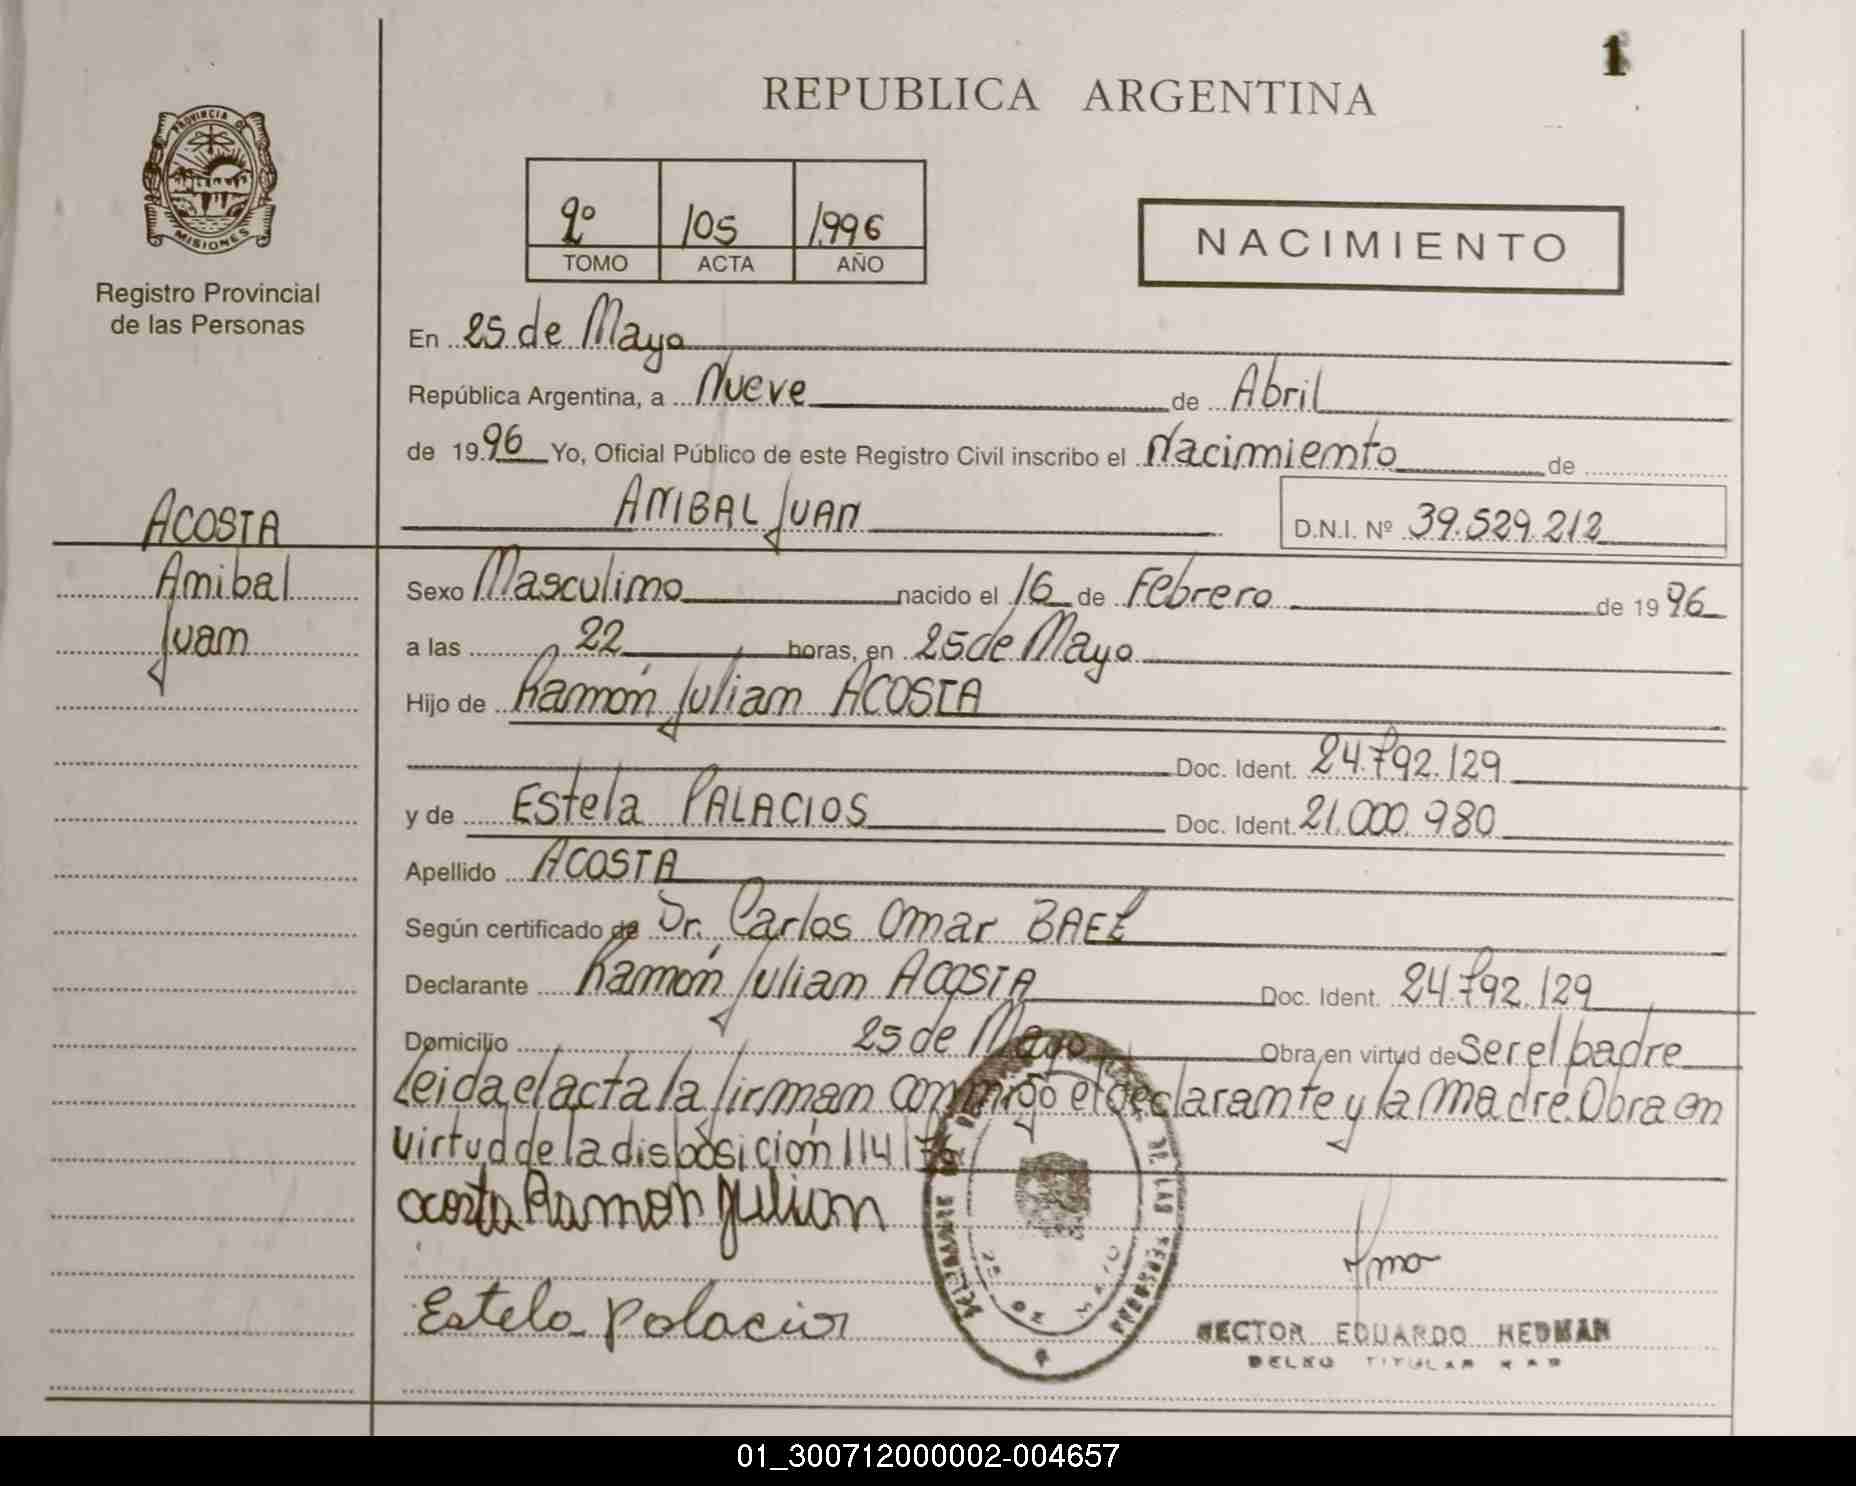 1
REPUBLICA ARGENTINA
PROVINCIA DE
MISIONES
Registro Provincial
de las Personas
2º 105 1996
TOMO ACTA AÑO
NACIMIENTO
En 25 de Mayo
República Argentina, a Nueve de Abril
de 1996 Yo, Oficial Público de este Registro Civil inscribo el Nacimiento de
ANIBAL JUAN D.N.I. Nº 39.529.212
ACOSTA
Anibal
Juan
Sexo Masculino nacido el 16 de Febrero de 1996
a las 22 horas, en 25 de Mayo
Hijo de Ramón Julian ACOSTA
Doc. Ident. 24.792.129
y de Estela PALACIOS Doc. Ident. 21.000.980
Apellido ACOSTA
Según certificado de Dr. Carlos Omar BAEZ
Declarante Ramón Julian ACOSTA Doc. Ident. 24.792.129
Domicilio 25 de Mayo Obra en virtud de Ser el padre
Leida el acta la firman conmigo el declarante y la madre. Obra en
virtud de la disposición 114/
acosta Ramon Julian
Estela Palacios
DE LAS PERSONAS
25 DE MAYO
HECTOR EDUARDO HEDMAN
TITULAR
01_300712000002-004657